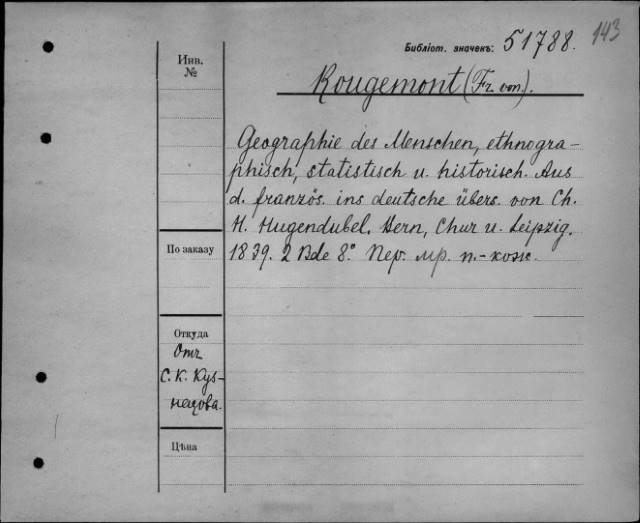 143
Библіот. значекъ: 51788.
Инв.
№
Rougemont (Fr. von).
Geographie des Menschen, ethnogra-
phisch, statistisch u. historisch. Aus
d. französ. ins deutsche übers. von Ch.
H. Hugendubel. Bern, Chur u. Leipzig.
1839. 2 Bde 8º. Пер. мр. п.-кож.
По заказу
Откуда
Отъ
С. К. Куз-
нецова.
Цѣна